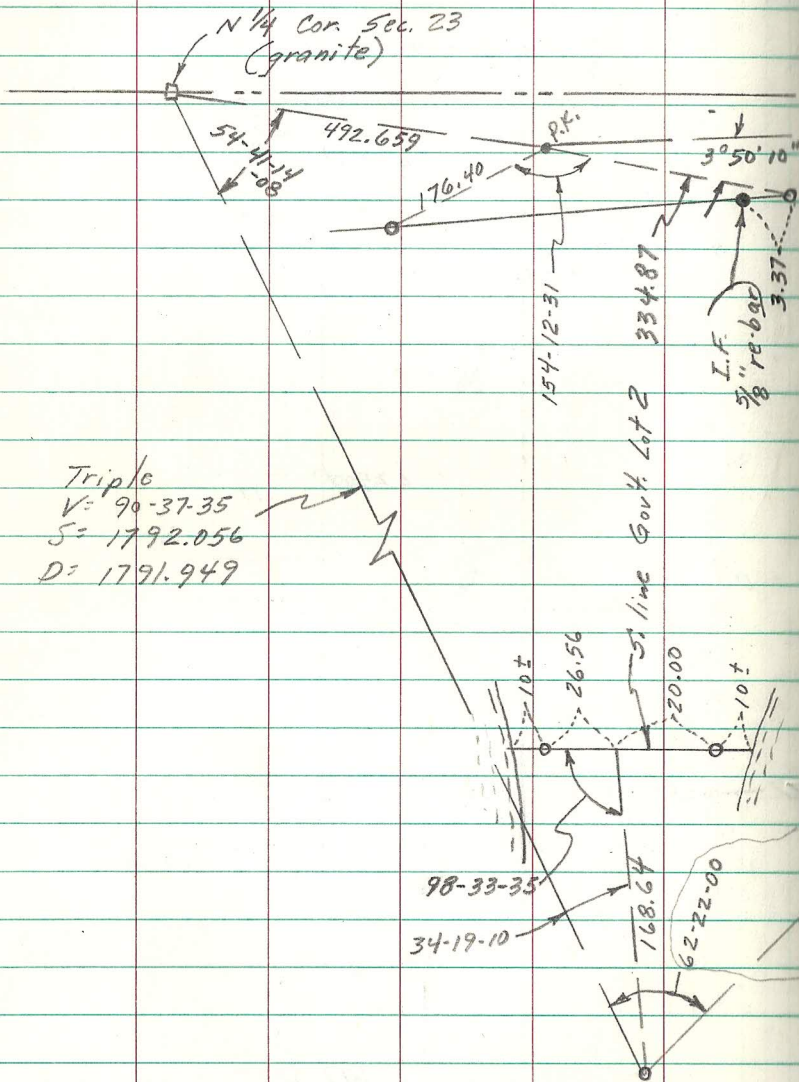 N 1/4 Cor. Sec. 23
(granite)
54-41-14
-08
492.659
P.K.
3°50'10"
176.40
154-12-31
334.87
I.F.
5/8" re-bar
3.37
Triple
V= 90-37-35
S= 1792.056
D= 1791.949
S. line Gov't. Lot 2
10±
26.56
20.00
10±
98-33-35
34-19-10
168.64
62-22-00